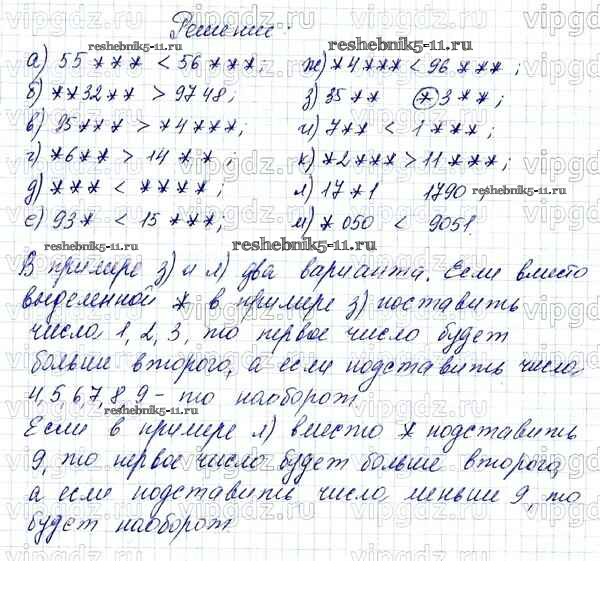 Решение:
а) 55*** < 56***; ж) *4*** < 96***;
б) **32** > 9748; з) 35** *3**;
в) 95*** > *4***; и) 7** < 1***;
г) *6** > 14**; к) *2*** > 11***;
д) *** < ****; л) 17*1 1790
е) 93* < 15***; м) *050 < 9051
В примере з) и л) два варианта. Если вместо
выделенной * в примере з) поставить
числа 1, 2, 3, то первое число будет
больше второго, а если подставить числа
4,5 6 7, 8, 9 - то наоборот.
Если в примере л) вместо * подставить
9, то первое число будет больше второго,
а если подставить число меньше 9, то
будет наоборот.
reshebnik5-11.ru
reshebnik5-11.ru
reshebnik5-11.ru
reshebnik5-11.ru
reshebnik5-11.ru
reshebnik5-11.ru
vipgdz.ru